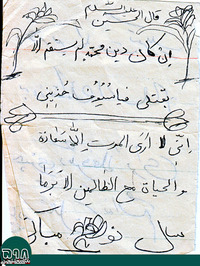 قال الحسین علیه السلام
إن کان دین محمد لم یستقم الا
بقتلی فیا سیوف خذینی
إنی لا أری الموت إلا سعادة
و الحیاة مع الظالمین الا برما
سال نو مبارک